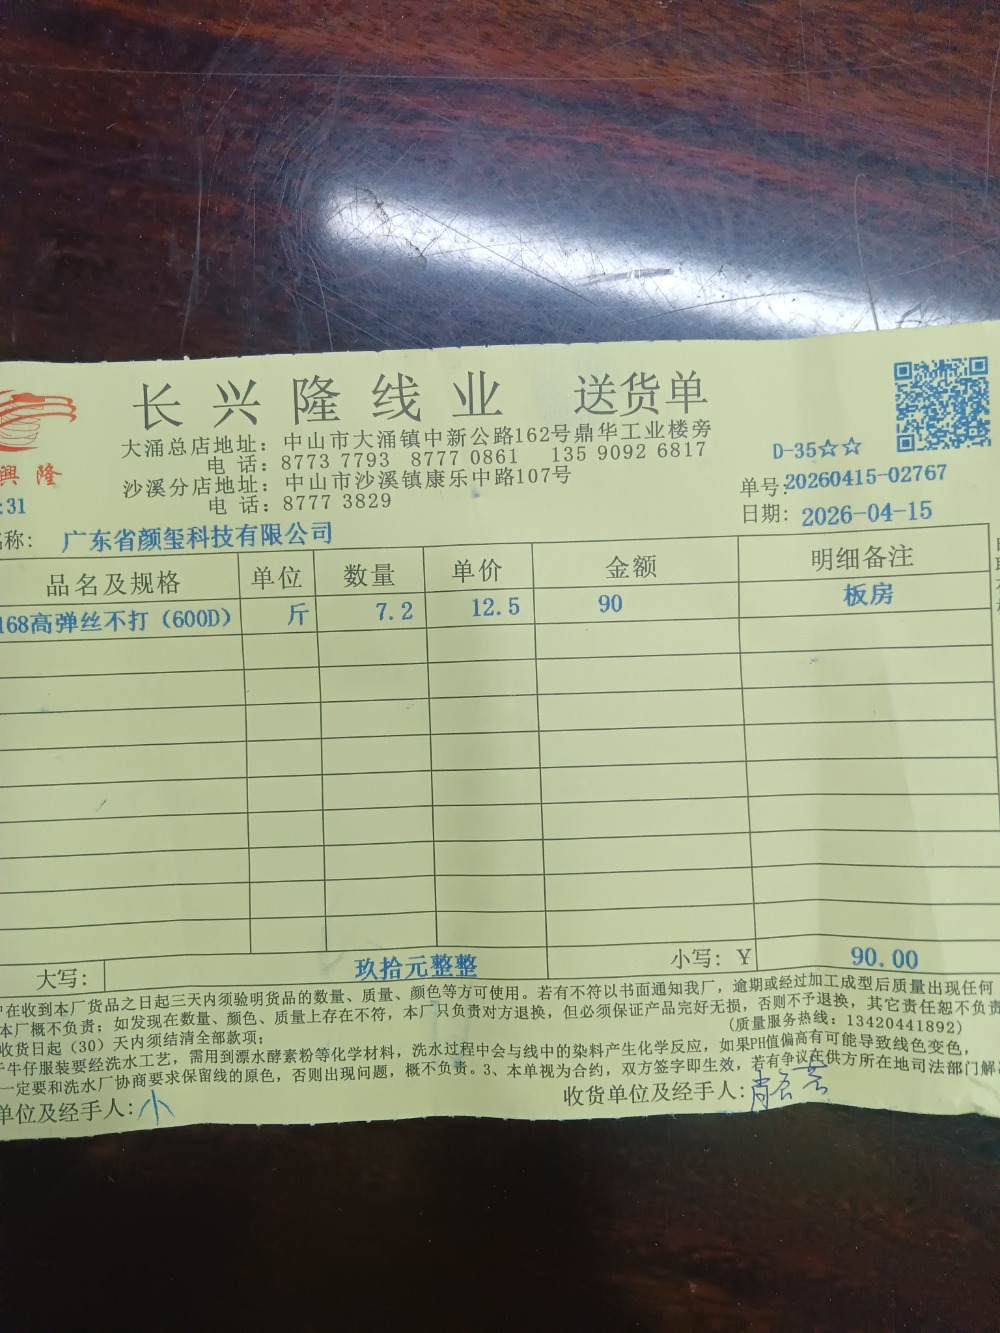 长兴隆线业 送货单
大涌总店地址：中山市大涌镇中新公路162号鼎华工业楼旁
电 话：8773 7793 8777 0861 135 9092 6817
沙溪分店地址：中山市沙溪镇康乐中路107号
电 话：8777 3829
興隆
D-35☆☆
单号:20260415-02767
日期: 2026-04-15
:31
称: 广东省颜玺科技有限公司
品名及规格 单位 数量 单价 金额 明细备注
168高弹丝不打（600D） 斤 7.2 12.5 90 板房
大写: 玖拾元整整 小写: ￥ 90.00
在收到本厂货品之日起三天内须验明货品的数量、质量、颜色等方可使用。若有不符以书面通知我厂，逾期或经过加工成型后质量出现任何
本厂概不负责；如发现在数量、颜色、质量上存在不符，本厂只负责对方退换，但必须保证产品完好无损，否则不予退换，其它责任恕不负责
(质量服务热线: 13420441892)
收货日起（30）天内须结清全部款项；
牛仔服装要经洗水工艺，需用到漂水酵素粉等化学材料，洗水过程中会与线中的染料产生化学反应，如果PH值偏高有可能导致线色变色，
一定要和洗水厂协商要求保留线的原色，否则出现问题，概不负责。3、本单视为合约，双方签字即生效，若有争议在供方所在地司法部门解
单位及经手人: 小 收货单位及经手人: